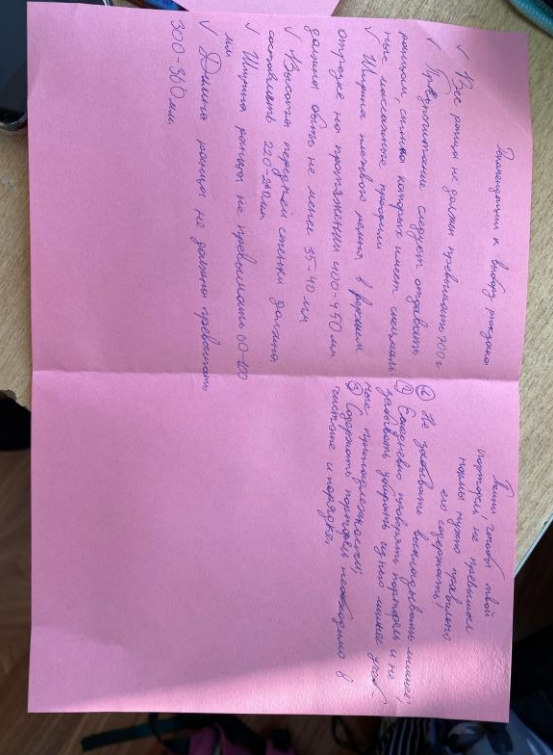 Рекомендации к выбору рюкзака
✓ Вес ранца не должен превышать 700 г
✓ Предпочитание следует отдавать
ранцам, спинка которых имеет специаль
ные массажные профили
✓ Ширина плевого ремня в верхнем
отрезке на протяжении 400-450 мм
должна быть не менее 35-40 мм
✓ Высота передней стенки должна
составлять 220-260мм
✓ Ширина ранца не превышать 60-100
мм
✓ Длина ранца не должна превышать
300-360мм.
Помни, чтобы твой
портфель не превышал
нормы нужно правильно
его содержать!
Не забывать выкладывать лишнее;
Ежедневно проверять портфель и не
забывать убирать из него лишние учеб
ные принадлежности;
③ Содержать портфель необходимо в
чистоте и порядке.